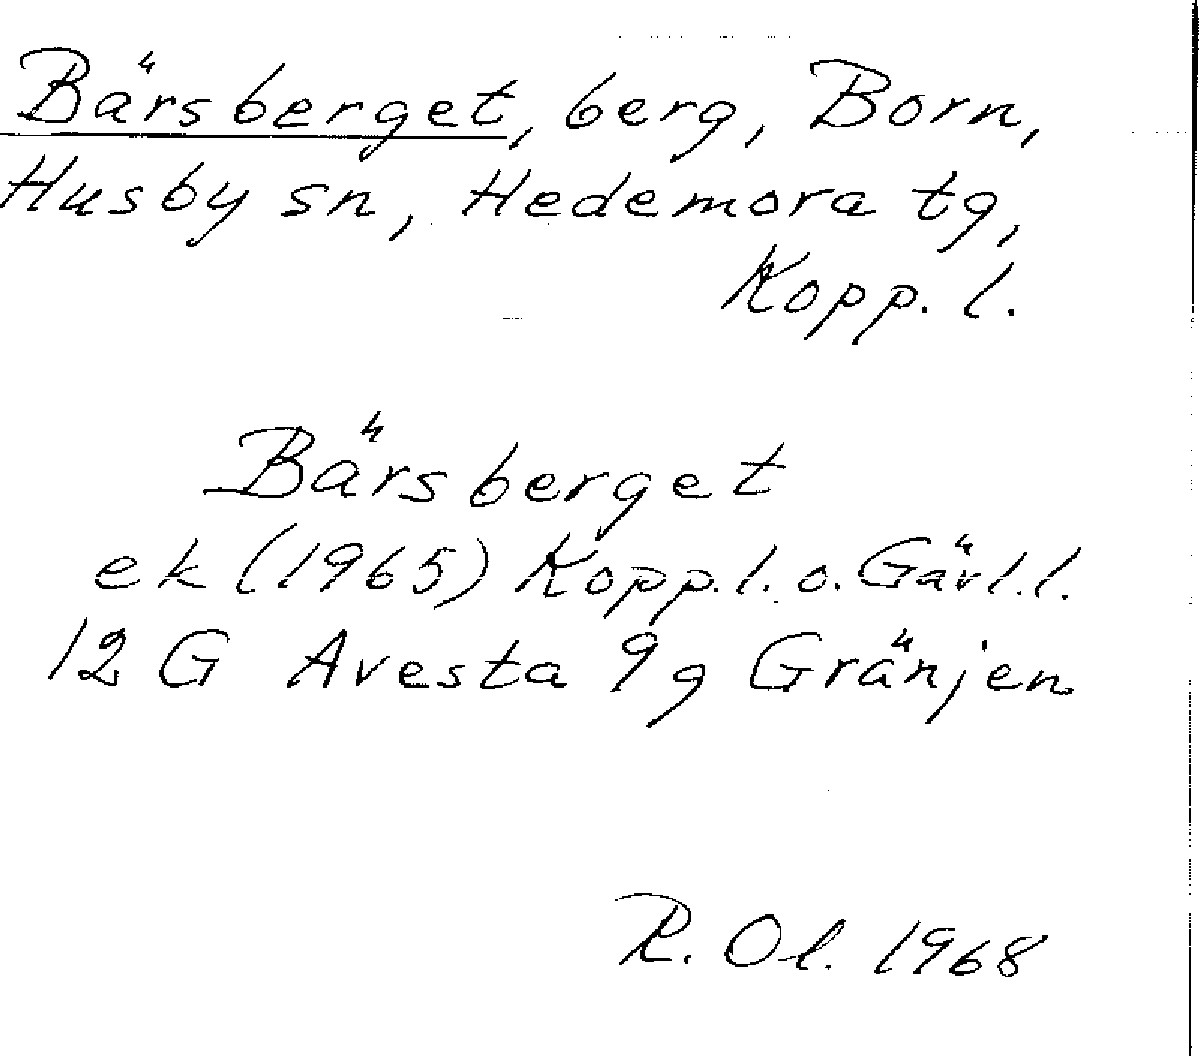 Bärsberget, berg, Born,
Husby sn, Hedemora tg,
Kopp. l.
Bärsberget
ek (1965) Kopp. l. o. Gävl. l.
12 G Avesta 9g Gränjen
R. Ol. 1968